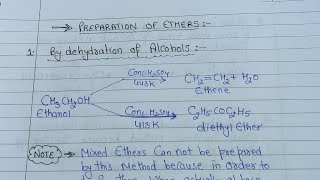 → PREPARATION OF ETHERS:-
1. By dehydration of Alcohols:-
Conc H2SO4
443K
CH2=CH2 + H2O
Ethene
CH3CH2OH
Ethanol
Conc H2SO4
413K
C2H5 COC2H5
diethyl Ether
NOTE → Mixed Ethers Can not be prepared
by this Method because in order to